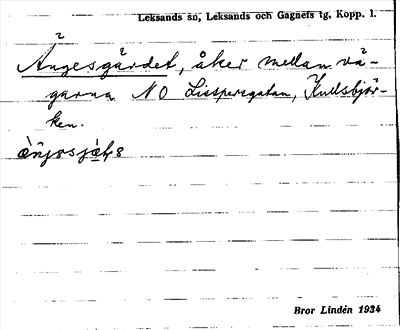 Leksands sn, Leksands och Gagnefs tg, Kopp. l.
Ängesgärdet, åker mellan vä-
garna NO Lisspersgatan, Kullsbjör-
ken.
Bror Lindén 1934